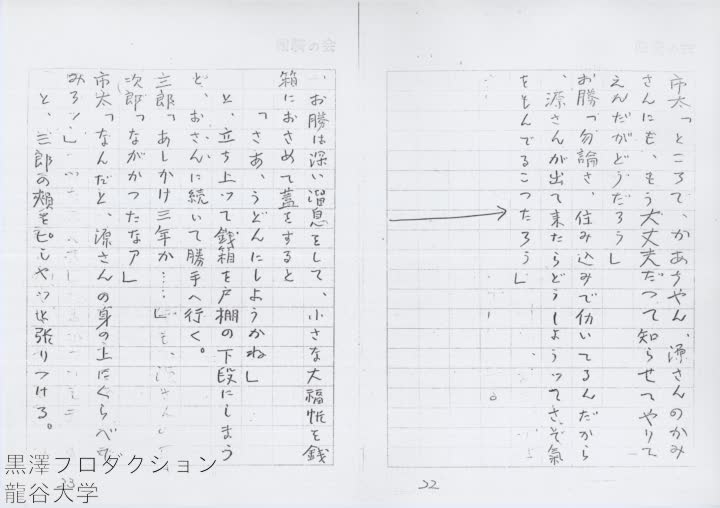 市太「ところで、かあちやん、源さんのかみ
さんにも、もう大丈夫だつて知らせてやりて
えんだがどうだろう」
お勝「勿論さ、住み込みで仂いてるんだから
、源さんが出て来たらどうしようつてさぞ氣
をもんでるこつたろう」
22
、お勝は深い溜息をして、小さな大福帳を銭
箱におさめて蓋をすると
「さあ、うどんにしようかね」
と、立ち上つて銭箱を戸棚の下段にしまう
と、おさんに続いて勝手へ行く。
三郎「あしかけ三年か……」
次郎「ながかつたなア」
市太「なんだと、源さんの身の上にくらべて
みろ
と、三郎の頬をピシヤツと張りつける。
23
黒澤プロダクション
龍谷大学